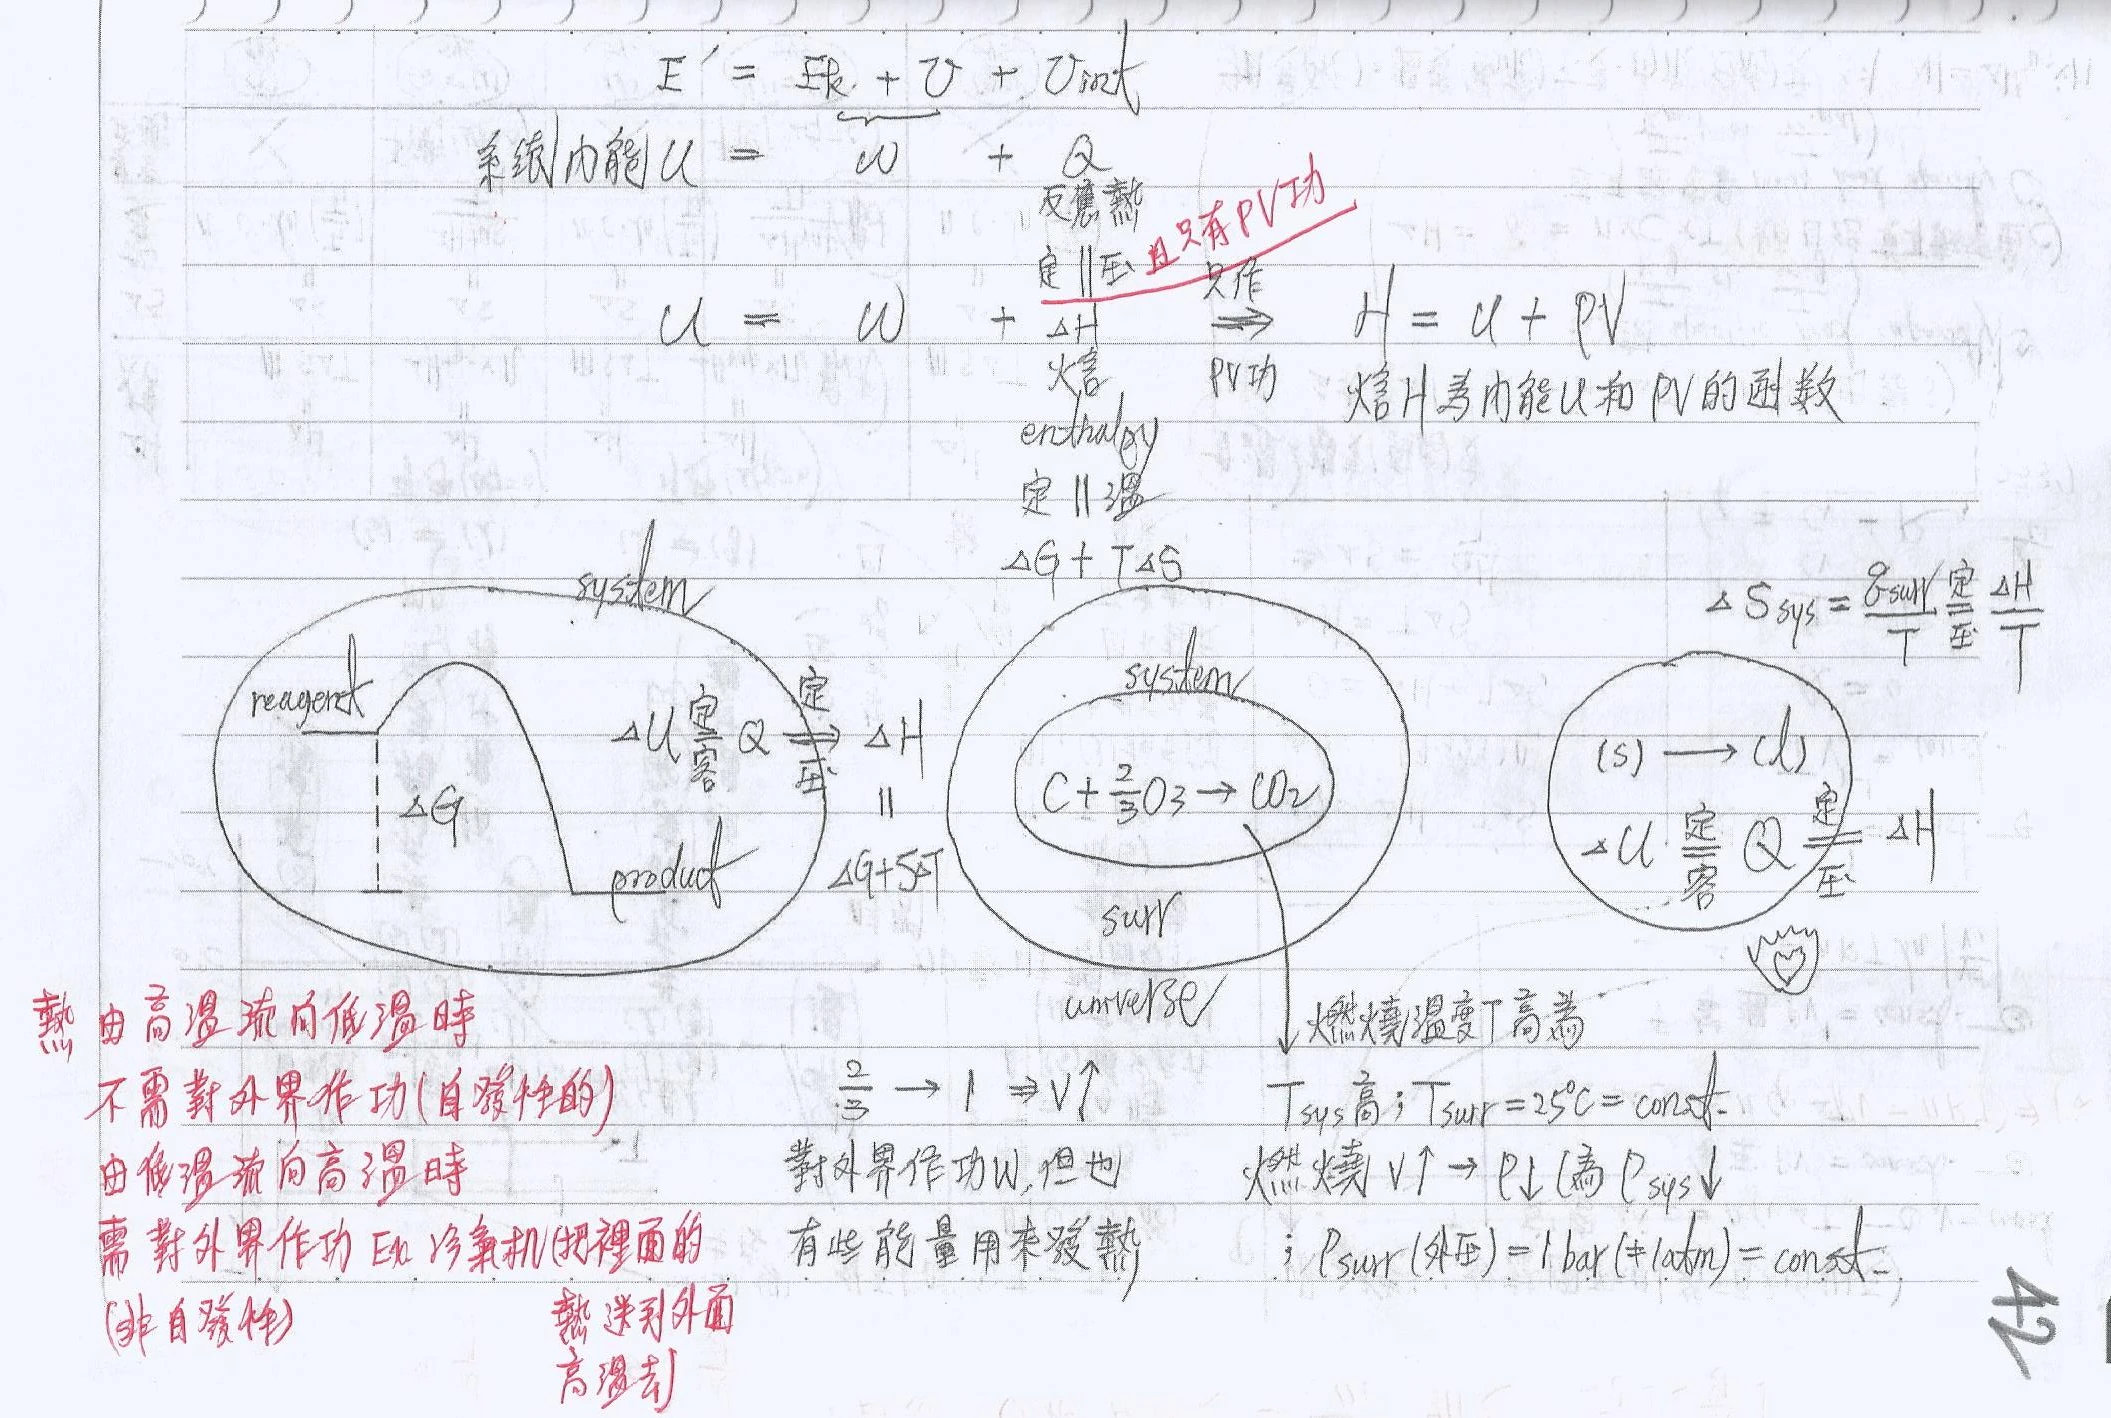 E' = Ek + U + Uint
系統內能U = W + Q
反應熱
定 || 压 且只有PV功
U = W + ΔH ⇒ H = U + PV
只作
PV功
焓
焓H為內能U和PV的函数
enthalpy
定 || 溫
ΔG + TΔS
system
reagent
ΔG
product
ΔU 定 = 容 Q 定 ⇒ 压 ΔH
||
ΔG+SΔT
system
C + 2/3 O3 → CO2
surr
universe
ΔSsys = qsurr/T 定 = 压 ΔH/T
(s) → (l)
ΔU 定 = 容 Q 定 = 压 ΔH
熱由高溫流向低溫時
不需對外界作功(自發性的)
由低溫流向高溫時
需對外界作功 Ex 冷氣机(把裡面的
熱送到外面
高溫去)
(非自發性)
2/3 → 1 ⇒ V↑
對外界作功W,但也
有些能量用來發熱
燃燒溫度T高為
Tsys高；Tsurr=25°C=const.
燃燒V↑→P↓(為Psys↓
；Psurr(外压)=1 bar(≠1atm)=const.
42